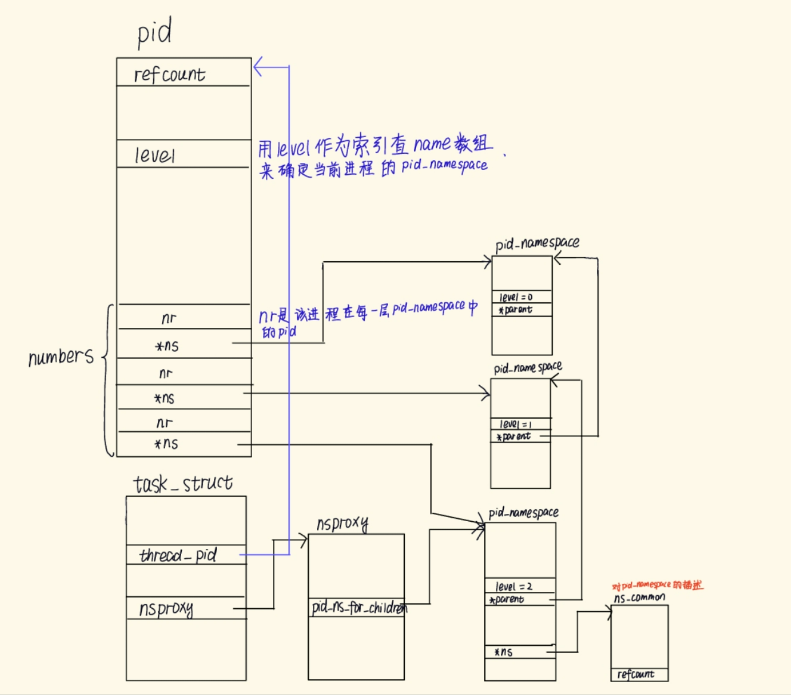 pid
refcount
level
用level作为索引查name数组.
来确定当前进程的pid_namespace
nr
nr是该进程在每一层pid_namespace中
的pid
*ns
nr
*ns
nr
*ns
numbers
pid_namespace
level=0
*parent
pid_namespace
level=1
*parent
task_struct
thread_pid
nsproxy
nsproxy
pid_ns_for_children
pid_namespace
level=2
*parent
*ns
对pid_namespace的描述
ns_common
refcount